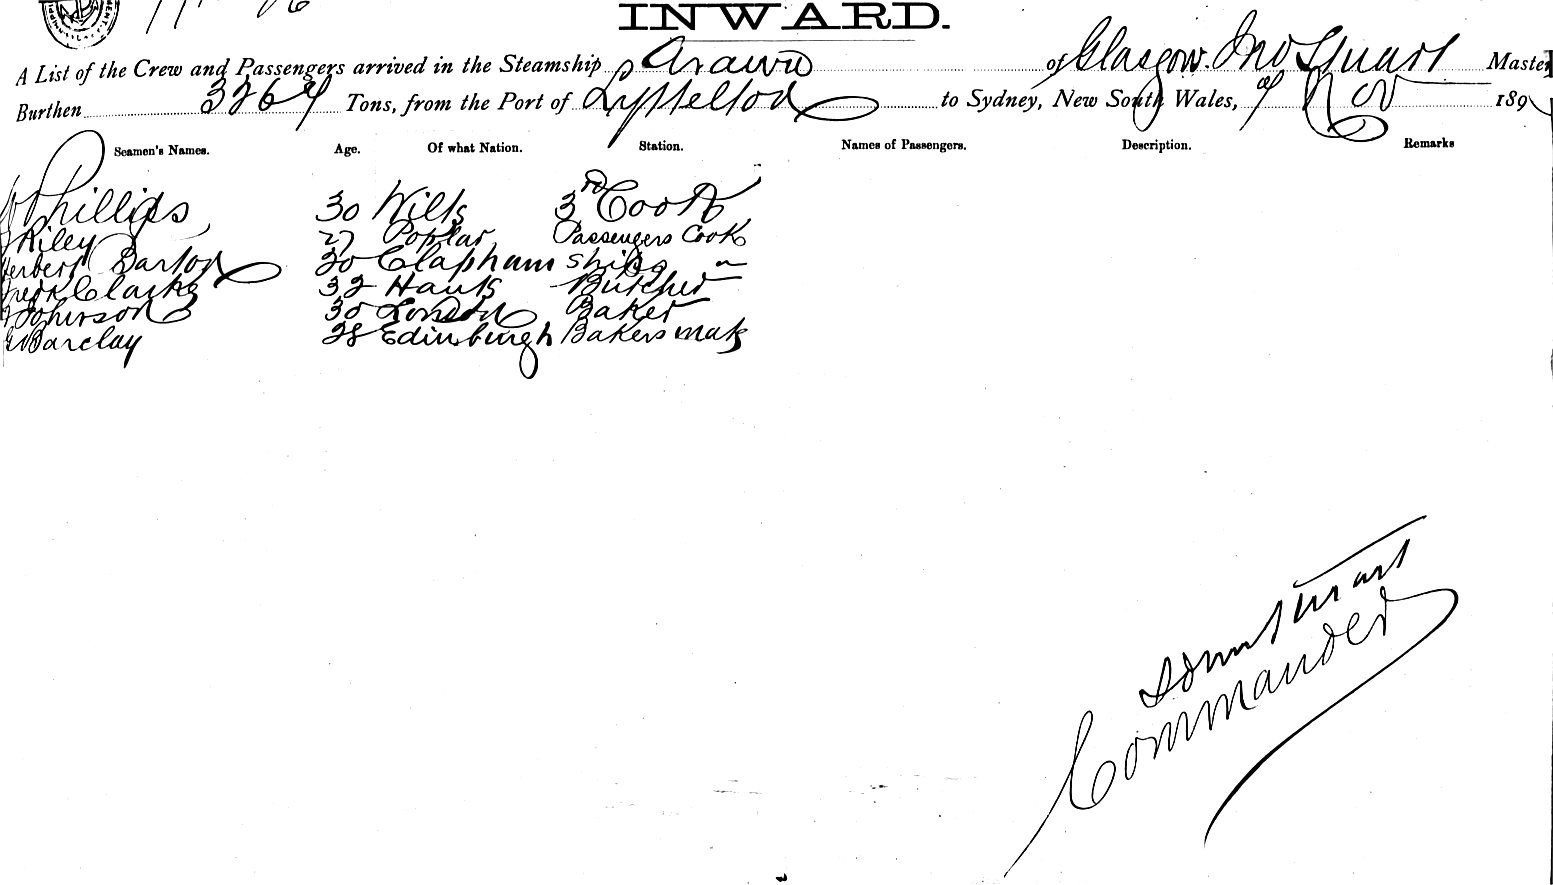 INWARD.
A List of the Crew and Passengers arrived in the Steamship Arawa of Glasgow. Jno Stuart Master
Burthen 3264 Tons, from the Port of Lyttelton to Sydney, New South Wales, Nov 189
Seamen's Names. Age. Of what Nation. Station. Names of Passengers. Description. Remarks
Phillips 30 Wilts 3rd Cook
Riley 27 Poplar Passengers Cook
Herbert Barton 20 Clapham Ships "
Fredk Clarke 32 Hants Butcher
Johnson 30 London Baker
Barclay 28 Edinburgh Bakers mate
John Stuart
Commander